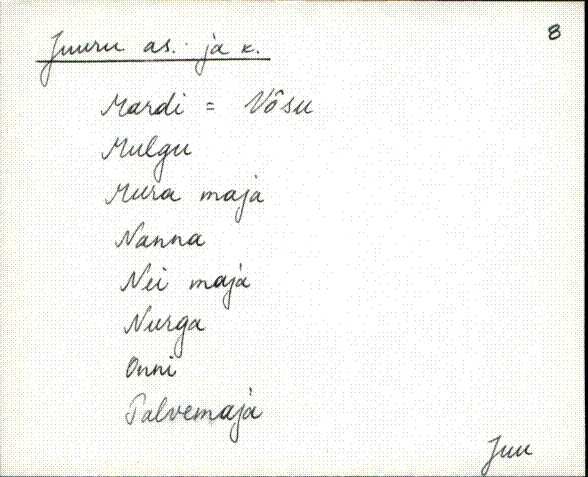 8
Juuru as. ja k.
Mardi = Võsu
Mulgu
Mura maja
Nanna
Nei maja
Nurga
Onni
Palvemaja
Juu